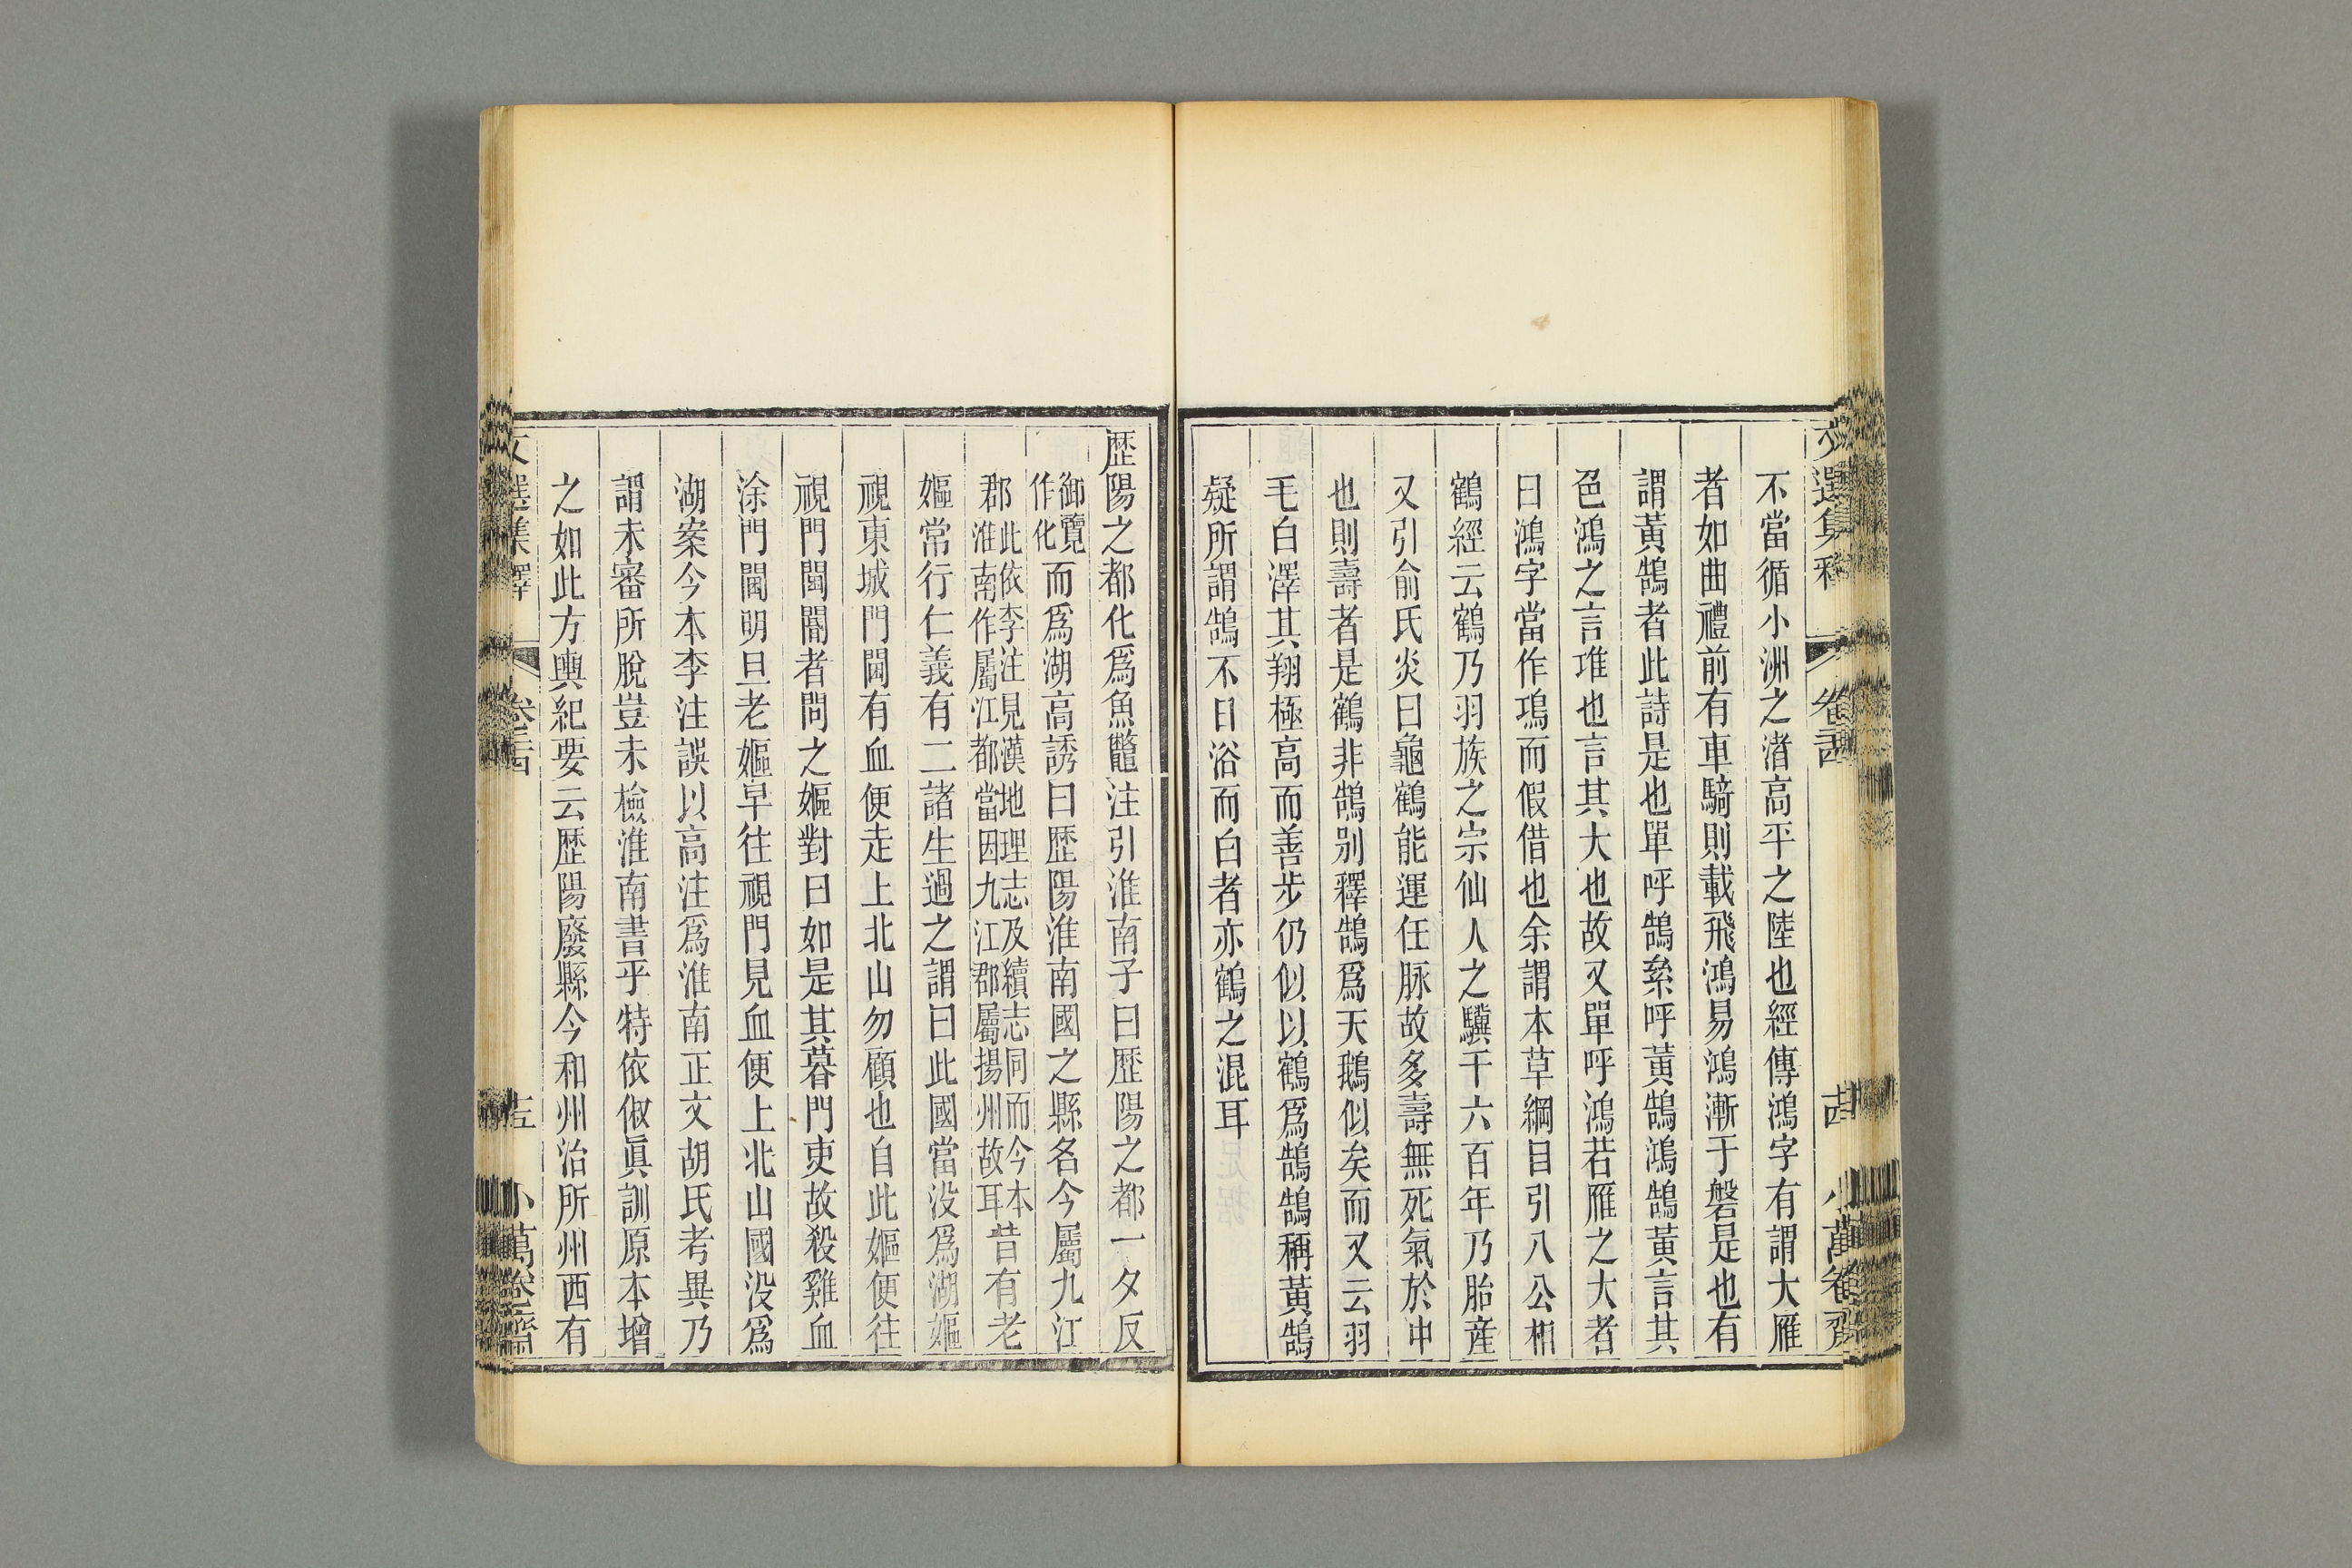 文選集釋 卷 小萬卷齋
不當循小洲之渚高平之陸也經傳鴻字有謂大雁
者如曲禮前有車騎則載飛鴻易鴻漸于磐是也有
謂黃鵠者此詩是也單呼鵠絫呼黃鵠鴻鵠黃言其
色鴻之言琟也言其大也故又單呼鴻若雁之大者
曰鴻字當作鳿而假借也余謂本草綱目引八公相
鶴經云鶴乃羽族之宗仙人之驥千六百年乃胎產
又引俞氏炎曰龜鶴能運任脉故多壽無死氣於中
也則壽者是鶴非鵠别釋鵠爲天鵝似矣而又云羽
毛白澤其翔極高而善步仍似以鶴爲鵠鵠稱黃鵠
疑所謂鵠不日浴而白者亦鶴之混耳
歷陽之都化爲魚鼈注引淮南子曰歷陽之都一夕反
御覽作化而爲湖高誘曰歷陽淮南國之縣名今屬九江
郡此依李注見漢地理志及續志同而今本淮南作屬江都當因九江郡屬揚州故耳昔有老
嫗常行仁義有二諸生過之謂曰此國當没爲湖嫗
視東城門閫有血便走上北山勿顧也自此嫗便往
視門閫閽者問之嫗對曰如是其暮門吏故殺雞血
涂門閫明旦老嫗早往視門見血便上北山國没爲
湖案今本李注誤以高注爲淮南正文胡氏考異乃
謂未審所脫豈未檢淮南書乎特依俶眞訓原本增
之如此方輿紀要云歷陽廢縣今和州治所州西有
文選集釋 卷 小萬卷齋